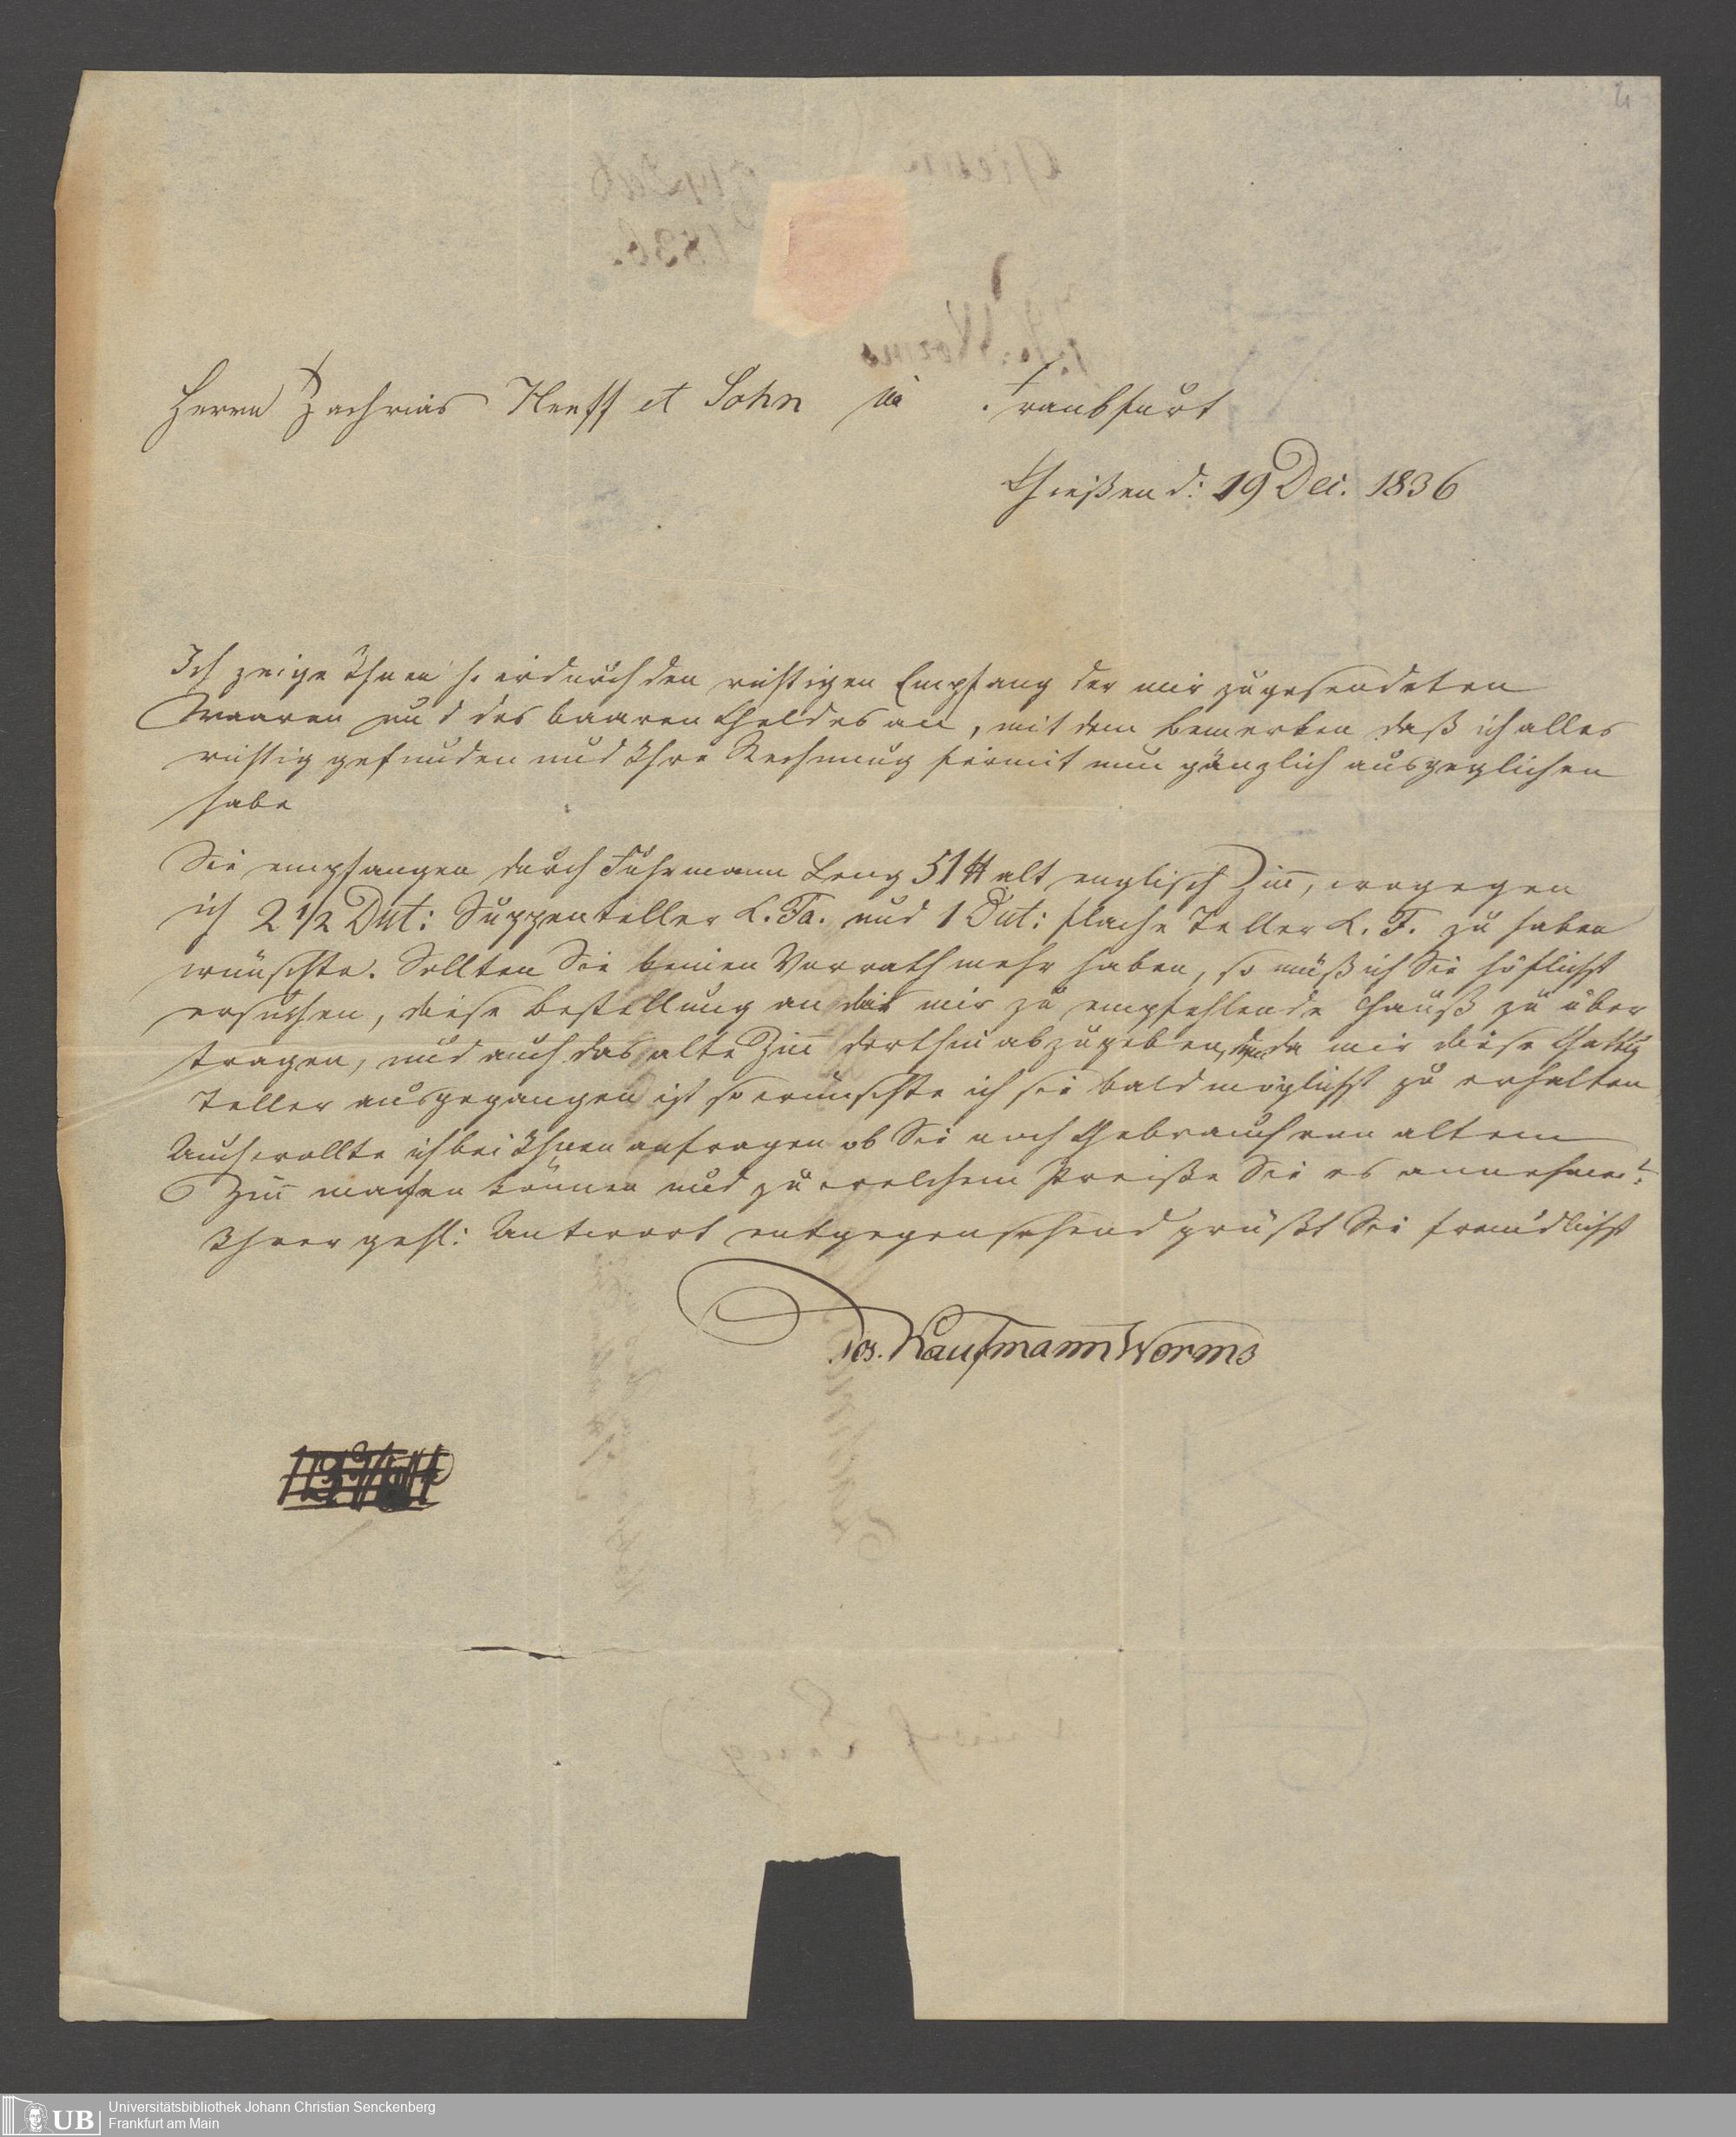 Herrn Zacharias Neeff et Sohn in Frankfurt
Gießen d: 19 Dec. 1836
Ich zeige Ihnen hierdurch den richtigen Empfang der mir zugesendeten
Waaren und des baaren Geldes an, mit dem bemerken daß ich alles
richtig gefunden und Ihre Rechnung hiermit nun gänzlich ausgeglichen
habe
Sie empfangen durch Fuhrmann Leng 51 ℔ alt englisch Zin̄, wogegen
ich 2 1/2 Dut: Suppenteller L. Fa. und 1 Dut: flache Teller L. F. zu haben
wünschte. Sollten Sie keinen Vorrath mehr haben, so muß ich Sie höflichst
ersuchen, diese bestellung an mir zu empfehlende Hauß zu über
tragen, und auch das alte Zin̄ dorthin abzugeben, da mir diese
Teller ausgegangen ist so wünschte ich sie bald möglichst zu erhalten
Auch wollte ich bei Ihnen anfragen ob Sie noch Gebrauch von altem
Zin̄ machen können und zu welchem Preiße Sie es annehmen?
Ihrer gefl: Antwort entgegensehend grüßt Sie freundlichst
Jos. Kaufmann Worms
UB
Universitätsbibliothek Johann Christian Senckenberg
Frankfurt am Main